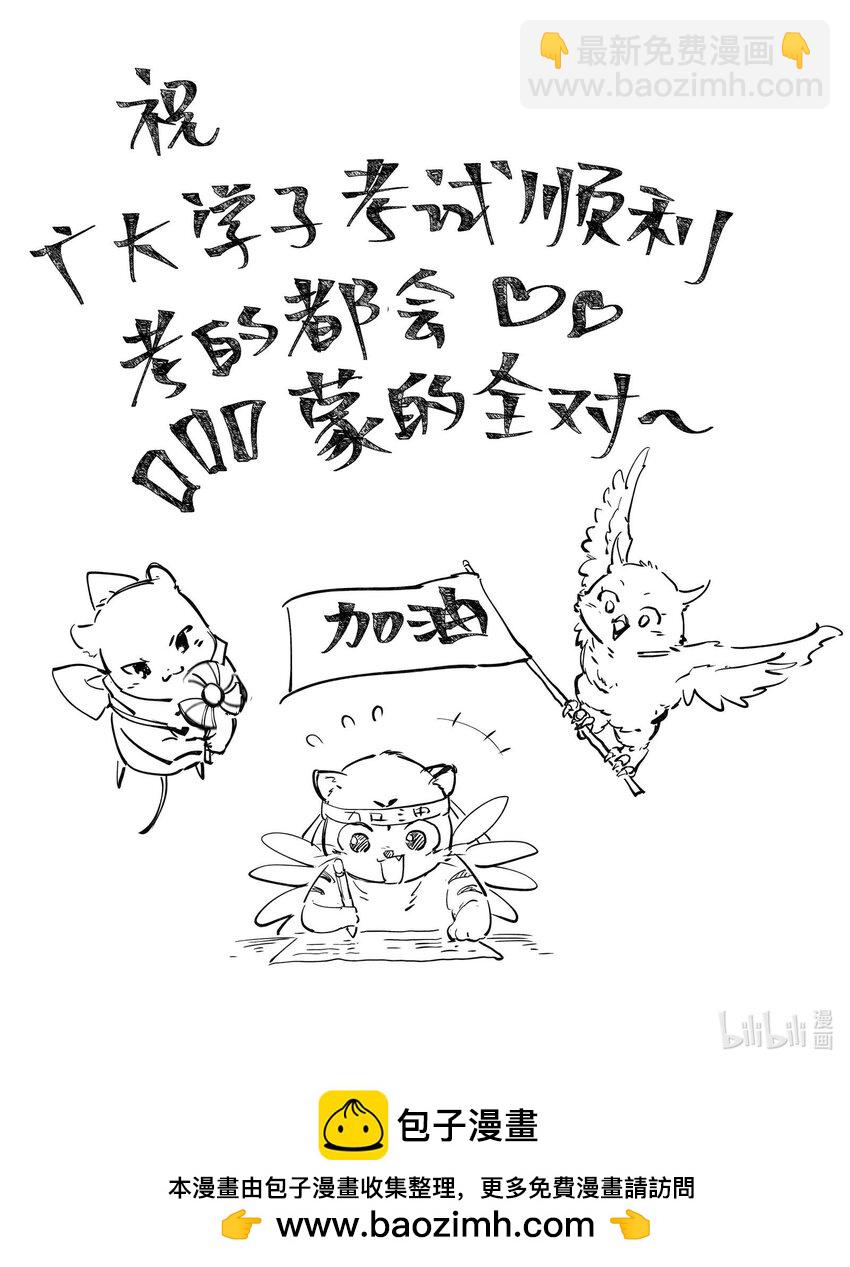 👇最新免费漫画👇
www.baozimh.com
祝
广大学子考试顺利
考的都会♡♡
蒙的全对~
加油
加油
bilibili 漫画
包子漫畫
本漫畫由包子漫畫收集整理，更多免費漫畫請訪問
👉 www.baozimh.com 👈